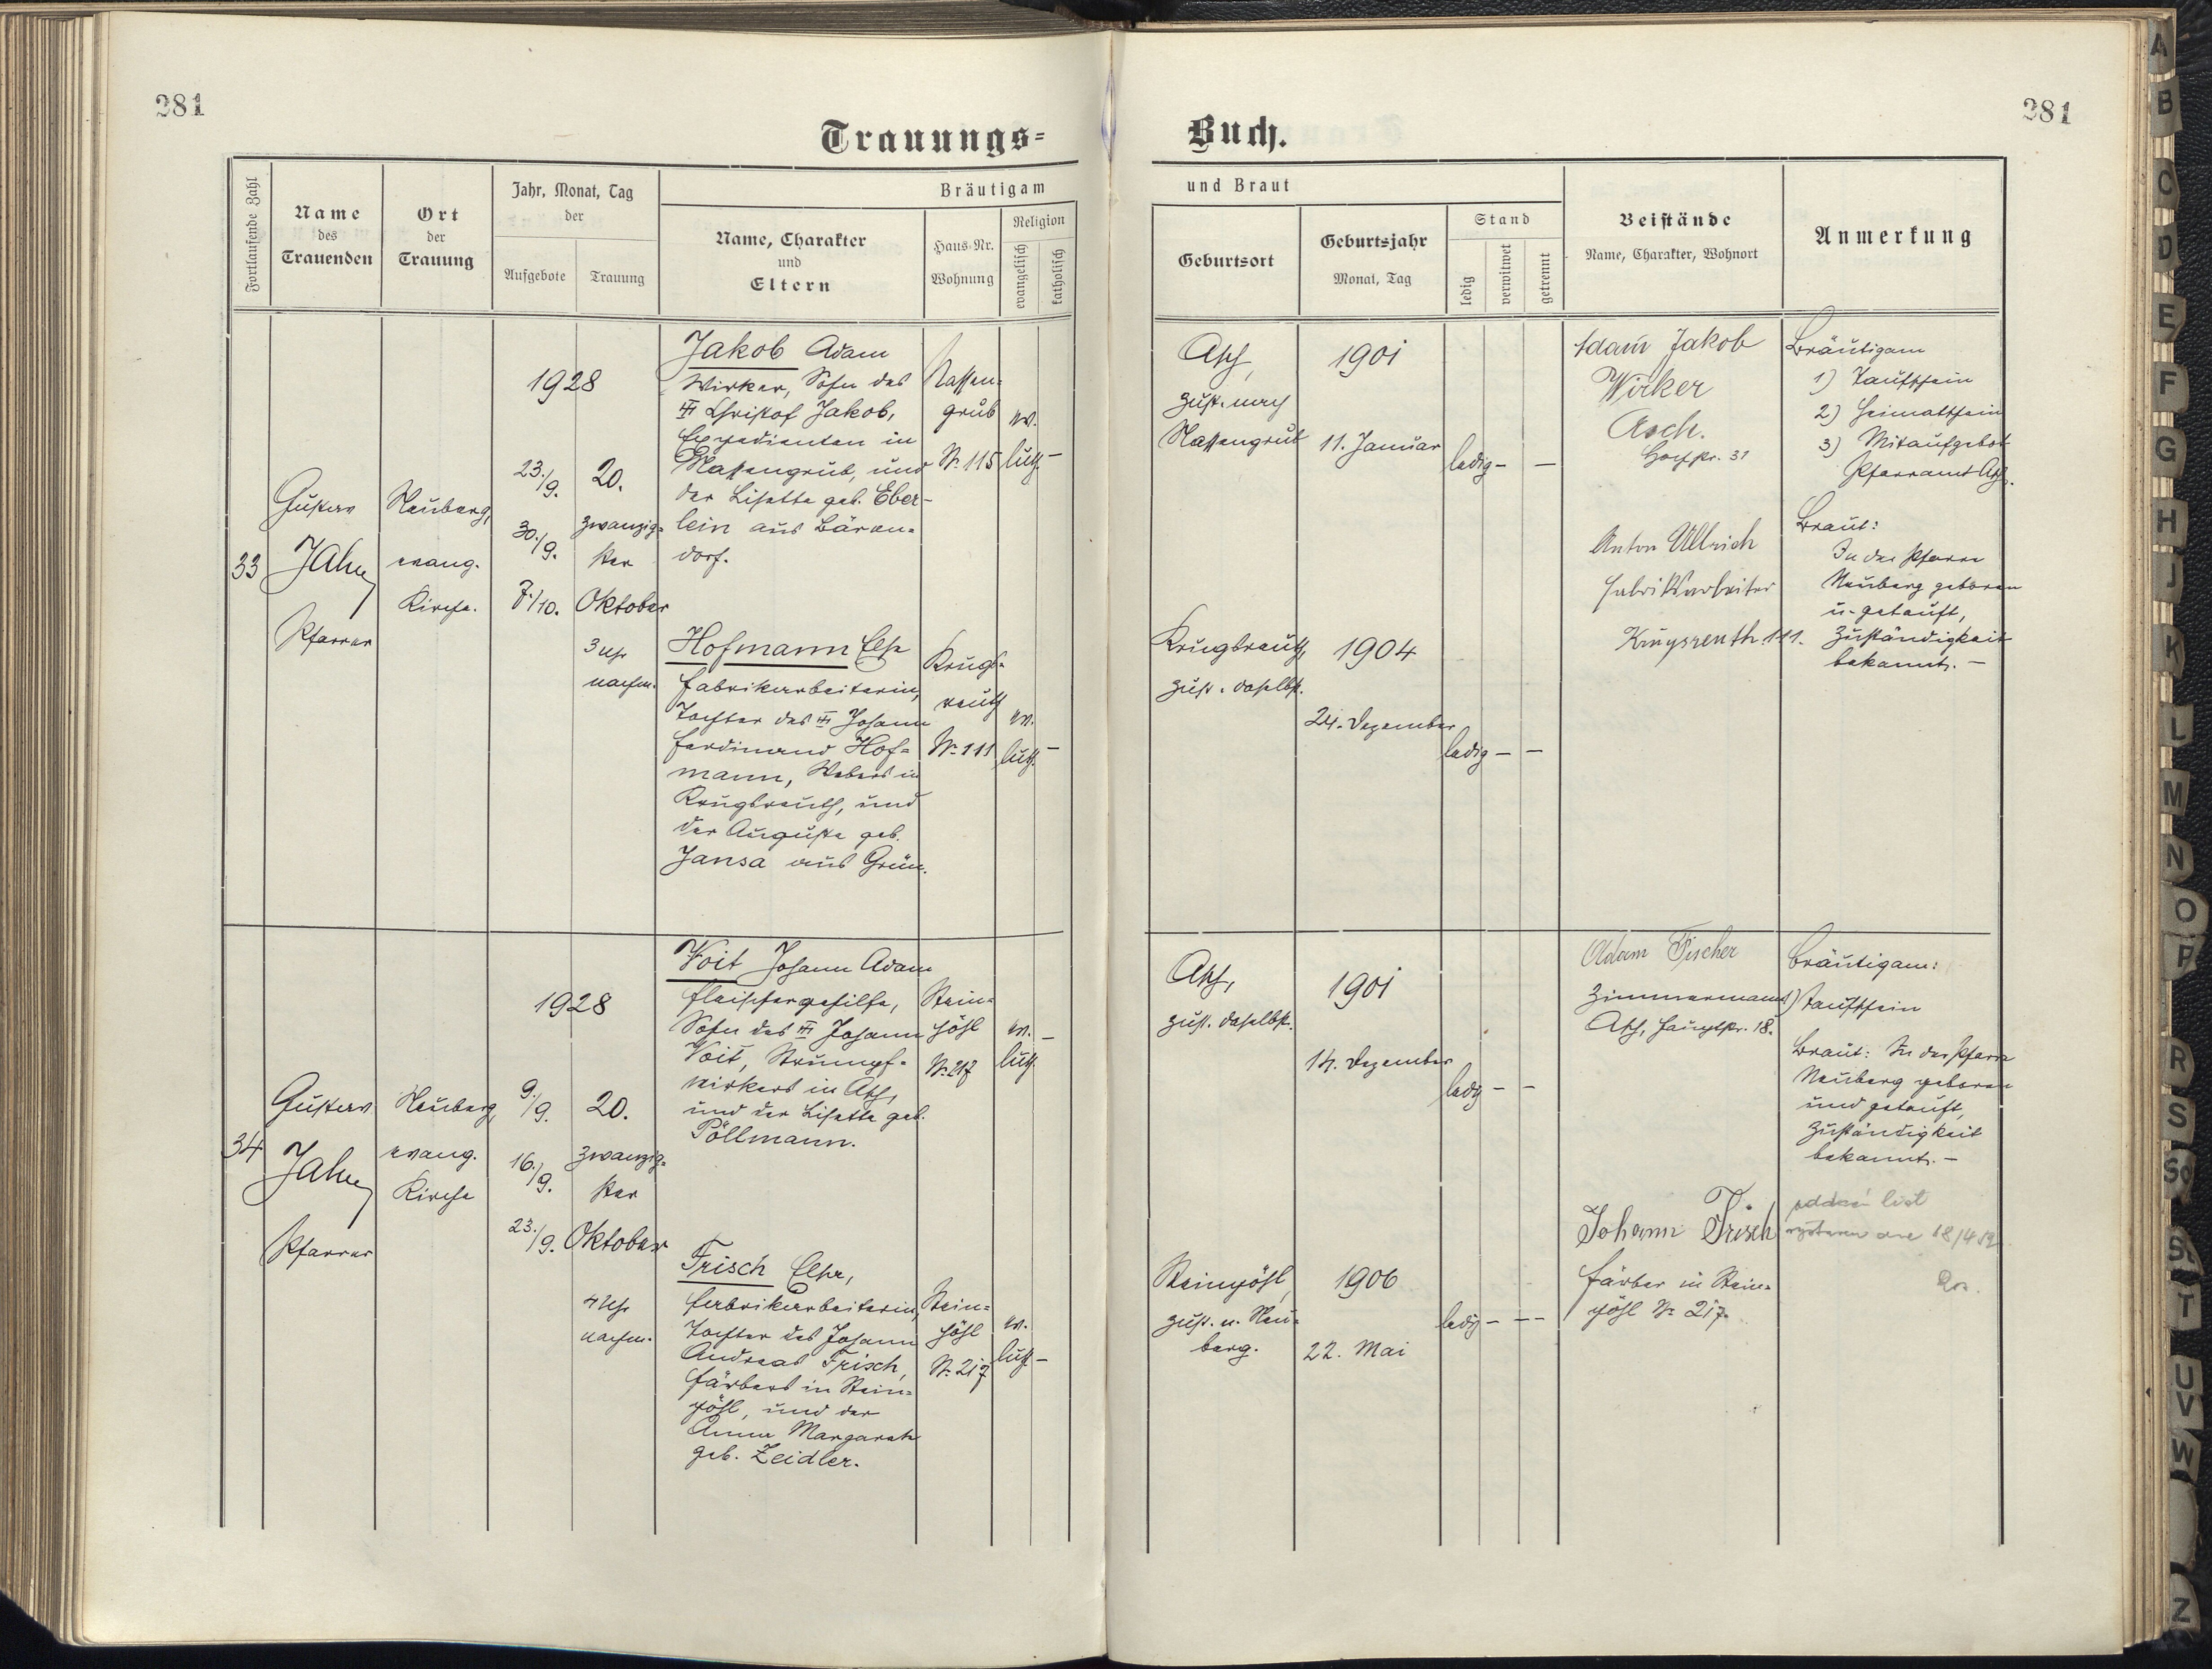 281
281
Trauungs-
Buch.
Fortlaufende Zahl
Name
des
Trauenden
Ort
der
Trauung
Jahr, Monat, Tag
der
Aufgebote
Trauung
Bräutigam
Name, Charakter
und
Eltern
Haus-Nr.
Wohnung
Religion
evangelisch
katholisch
und Braut
Geburtsort
Geburtsjahr
Monat, Tag
Stand
ledig
verwitwet
getrennt
Beistände
Name, Charakter, Wohnort
Anmerkung
33
Gustav
Jahn
Pfarrer
Neuberg,
evang.
Kirche.
1928
23./9.
30./9.
7./10.
20.
zwanzig-
ster
Oktober
3 Uhr
nachm.
Jakob Adam
Wirker, Sohn des
Christof Jakob,
Expedienten in
Nassengrub, und
der Lisette geb. Eber-
lein aus Bären-
dorf.
Nassen-
grub
Nr. 115
ev.
luth. –
Hofmann Else
Fabrikarbeiterin,
Tochter des Johann
Ferdinand Hof-
mann, Webers in
Krugsreuth, und
der Auguste geb.
Jansa aus Grün.
Krugs-
reuth
Nr. 111
ev.
luth. –
Asch,
zust. nach
Nassengrub
1901
11. Januar
ledig – –
Krugsreuth,
zust. daselbst.
1904
24. Dezember
ledig – –
Adam Jakob
Wirker
Asch.
31
Anton Ullrich
Fabriksarbeiter
Krugsreuth 111.
Bräutigam
1) Taufschein
2) Heimatschein
3) Mitaufgebot
Pfarramt Asch.
Braut:
In der Pfarre
Neuberg geboren
u. getauft,
Zuständigkeit
bekannt. –
34
Gustav
Jahn
Pfarrer
Neuberg,
evang.
Kirche
1928
9./9.
16./9.
23./9.
20.
zwanzig-
ster
Oktober
4 Uhr
nachm.
Voit Johann Adam
Fleischergehilfe,
Sohn des Johann
Voit, Strumpf-
wirkers in Asch,
und der Lisette geb.
Pöllmann.
Stein-
pöhl
Nr. 217
ev. –
luth.
Frisch Elsa,
Fabrikarbeiterin,
Tochter des Johann
Andreas Frisch,
Färbers in Stein-
pöhl, und der
Anna Margarete
geb. Zeidler.
Stein-
pöhl
Nr. 217
ev.
luth. –
Asch,
zust. daselbst.
1901
14. Dezember
ledig – –
Steinpöhl,
zust. n. Neu-
berg.
1906
22. Mai
ledig – – –
Adam Fischer
Zimmermann
Asch, Hauptstr. 18.
Johann Frisch
Färber in Stein-
pöhl Nr. 217.
Bräutigam:
1) Taufschein
Braut: In der Pfarre
Neuberg geboren
und getauft,
Zuständigkeit
bekannt. –
oddací list
18/4
A
B
C
D
E
F
G
H
J
K
L
M
N
O
P
R
S
Sch
St
T
U
V
W
Z